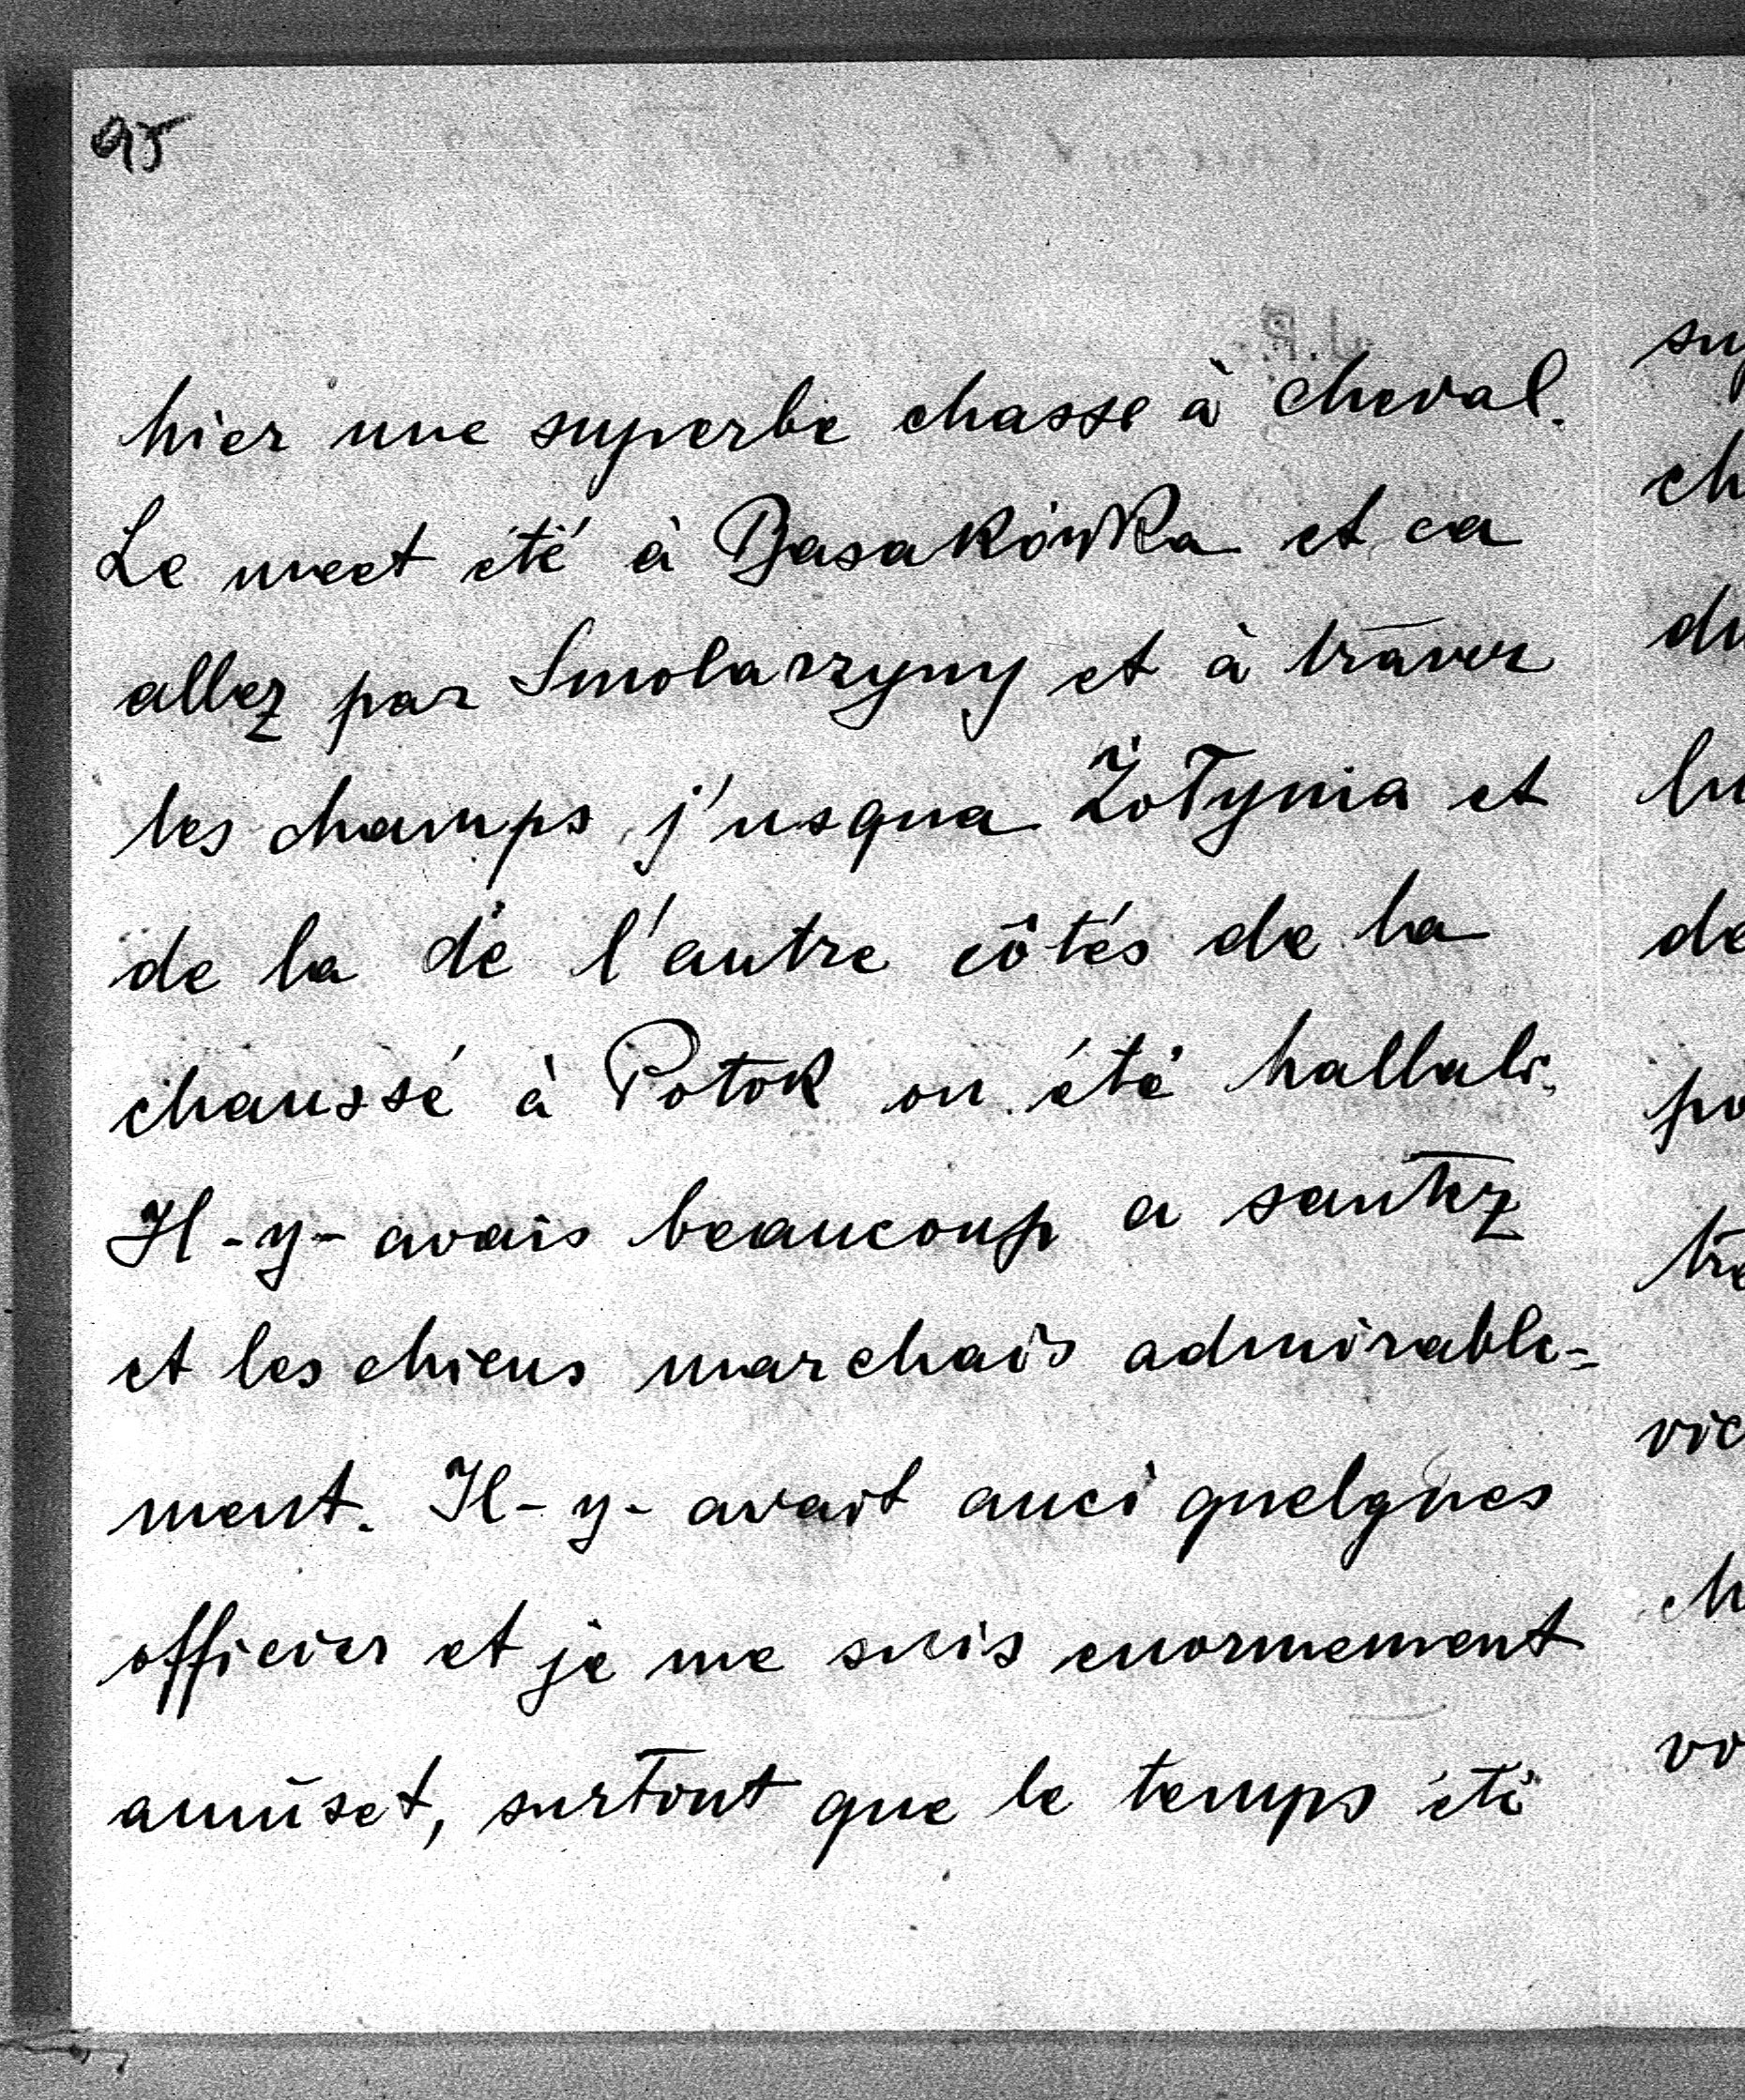 95
hier une superbe chasse à cheval.
Le meet été à Basakówka et ca
allez par Smolarzyny et à traver
les champs j'usqua Żołynia et
de la de l'autre côtés de la
chaussé à Potok ou été hallali.
Il-y-avais beaucoup a sautez
et les chiens marchais admirable-
ment. Il-y-avait auci quelques
officier et je me suis enormement
amuset, surtout que le temps été